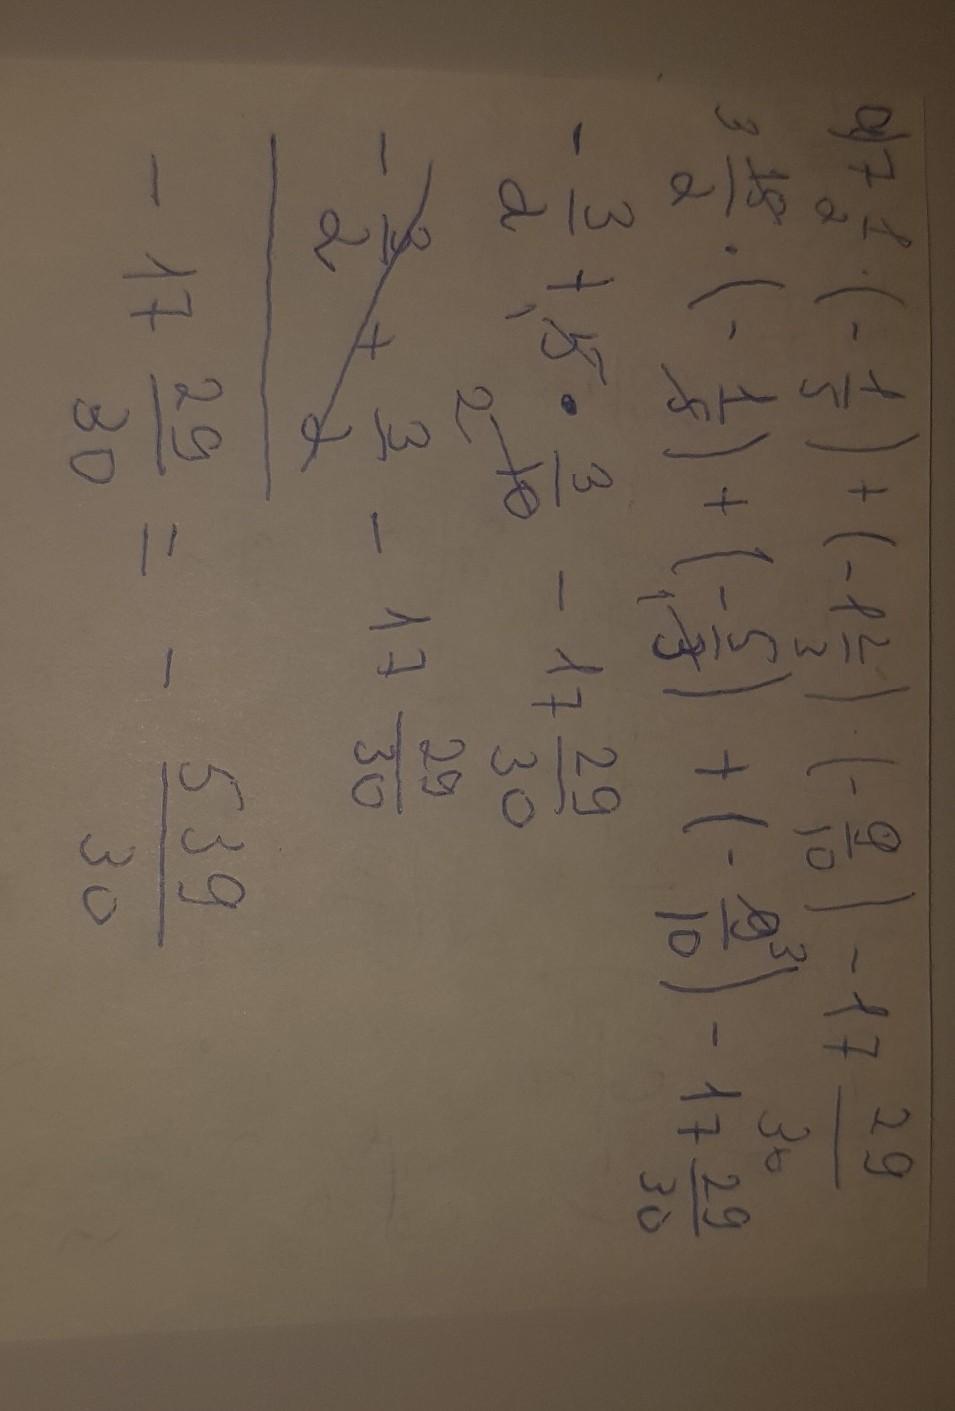 a) 7 1/2 · (- 1/5) + (-1 2/3) · (- 9/10) - 17 29/30
3 15/2 · (- 1/5) + (- 5/3 1) + (- 9/10 3) - 17 29/30
- 3/2 + 1 5 · 3/10 2 - 17 29/30
- 3/2 + 3/2 - 17 29/30
- 17 29/30 = - 539/30